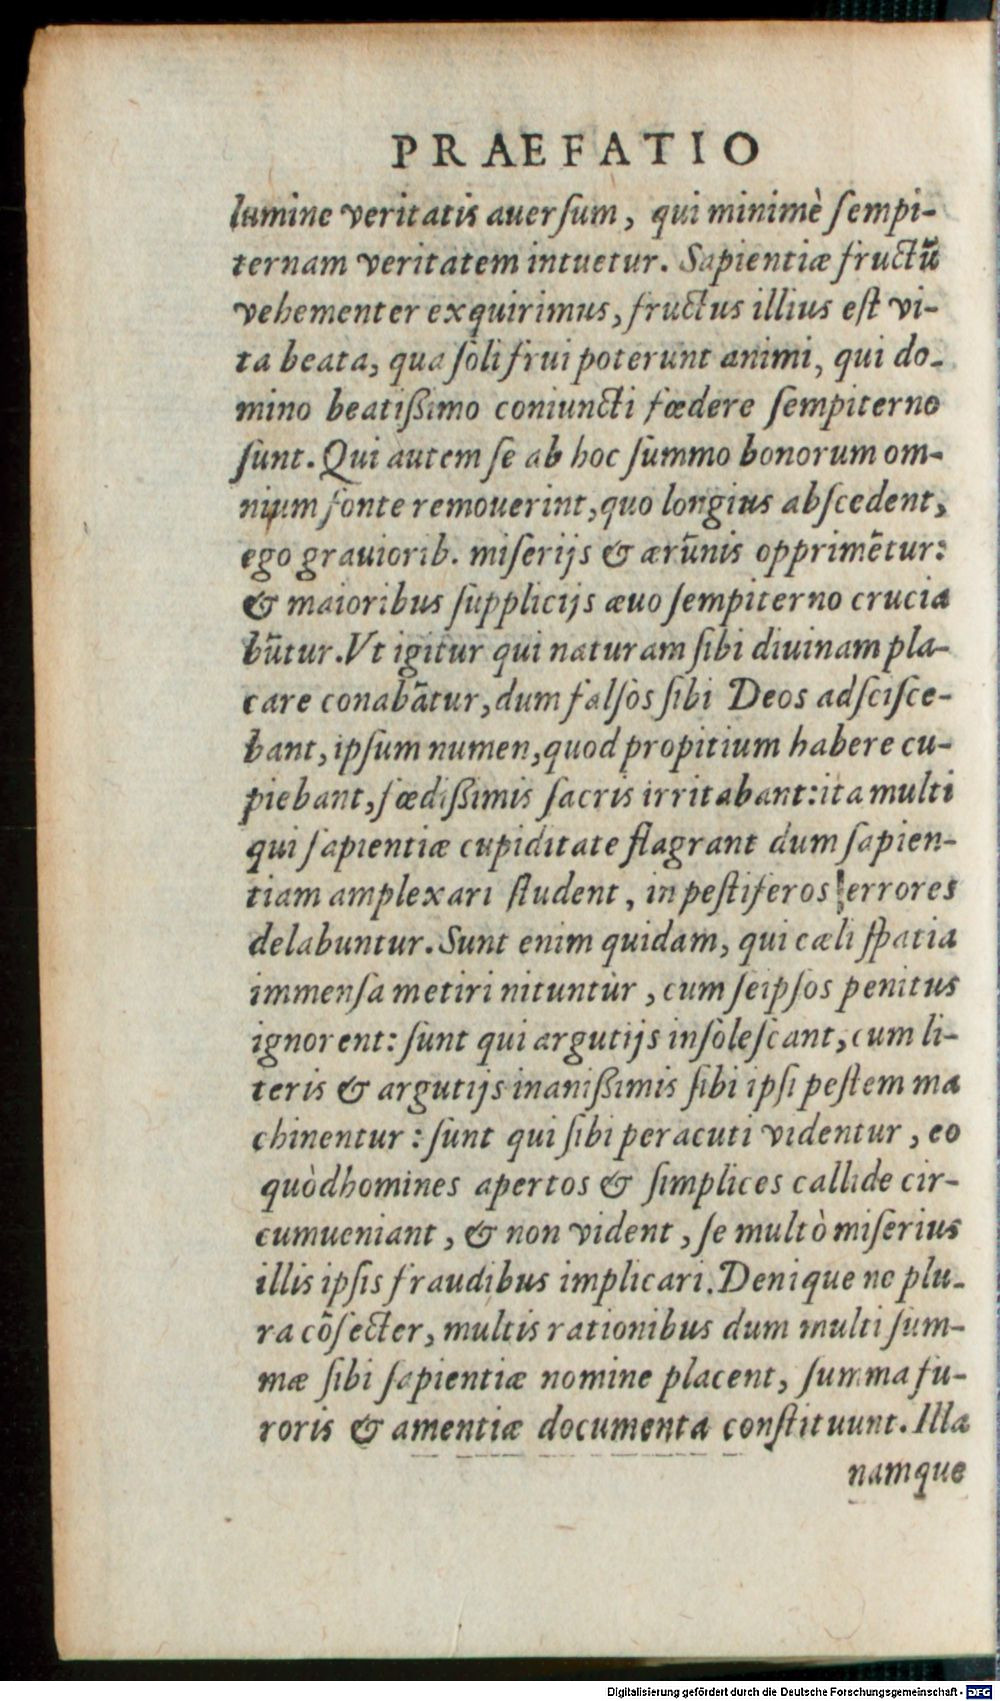 PRAEFATIO
lumine veritatis auersum, qui minimè sempi-
ternam veritatem intuetur. Sapientiæ fructū
vehementer exquirimus, fructus illius est vi-
ta beata, qua soli frui poterunt animi, qui do-
mino beatißimo coniuncti fœdere sempiterno
sunt. Qui autem se ab hoc summo bonorum om-
nium fonte remouerint, quo longius abscedent,
ego grauiorib. miserijs & ærūnis opprimētur:
& maioribus supplicijs æuo sempiterno crucia
būtur. Vt igitur qui naturam sibi diuinam pla-
care conabātur, dum falsos sibi Deos adscisce-
bant, ipsum numen, quod propitium habere cu-
piebant, fœdißimis sacris irritabant: ita multi
qui sapientiæ cupiditate flagrant dum sapien-
tiam amplexari student, in pestiferos errores
delabuntur. Sunt enim quidam, qui cæli spatia
immensa metiri nituntur, cum seipsos penitus
ignorent: sunt qui argutijs insolescant, cum li-
teris & argutijs inanißimis sibi ipsi pestem ma
chinentur: sunt qui sibi peracuti videntur, eo
quòd homines apertos & simplices callide cir-
cumueniant, & non vident, se multò miserius
illis ipsis fraudibus implicari. Denique ne plu-
ra cōsecter, multis rationibus dum multi sum-
mæ sibi sapientiæ nomine placent, summa fu-
roris & amentiæ documenta constituunt. Illa
namque
Digitalisierung gefördert durch die Deutsche Forschungsgemeinschaft - DFG